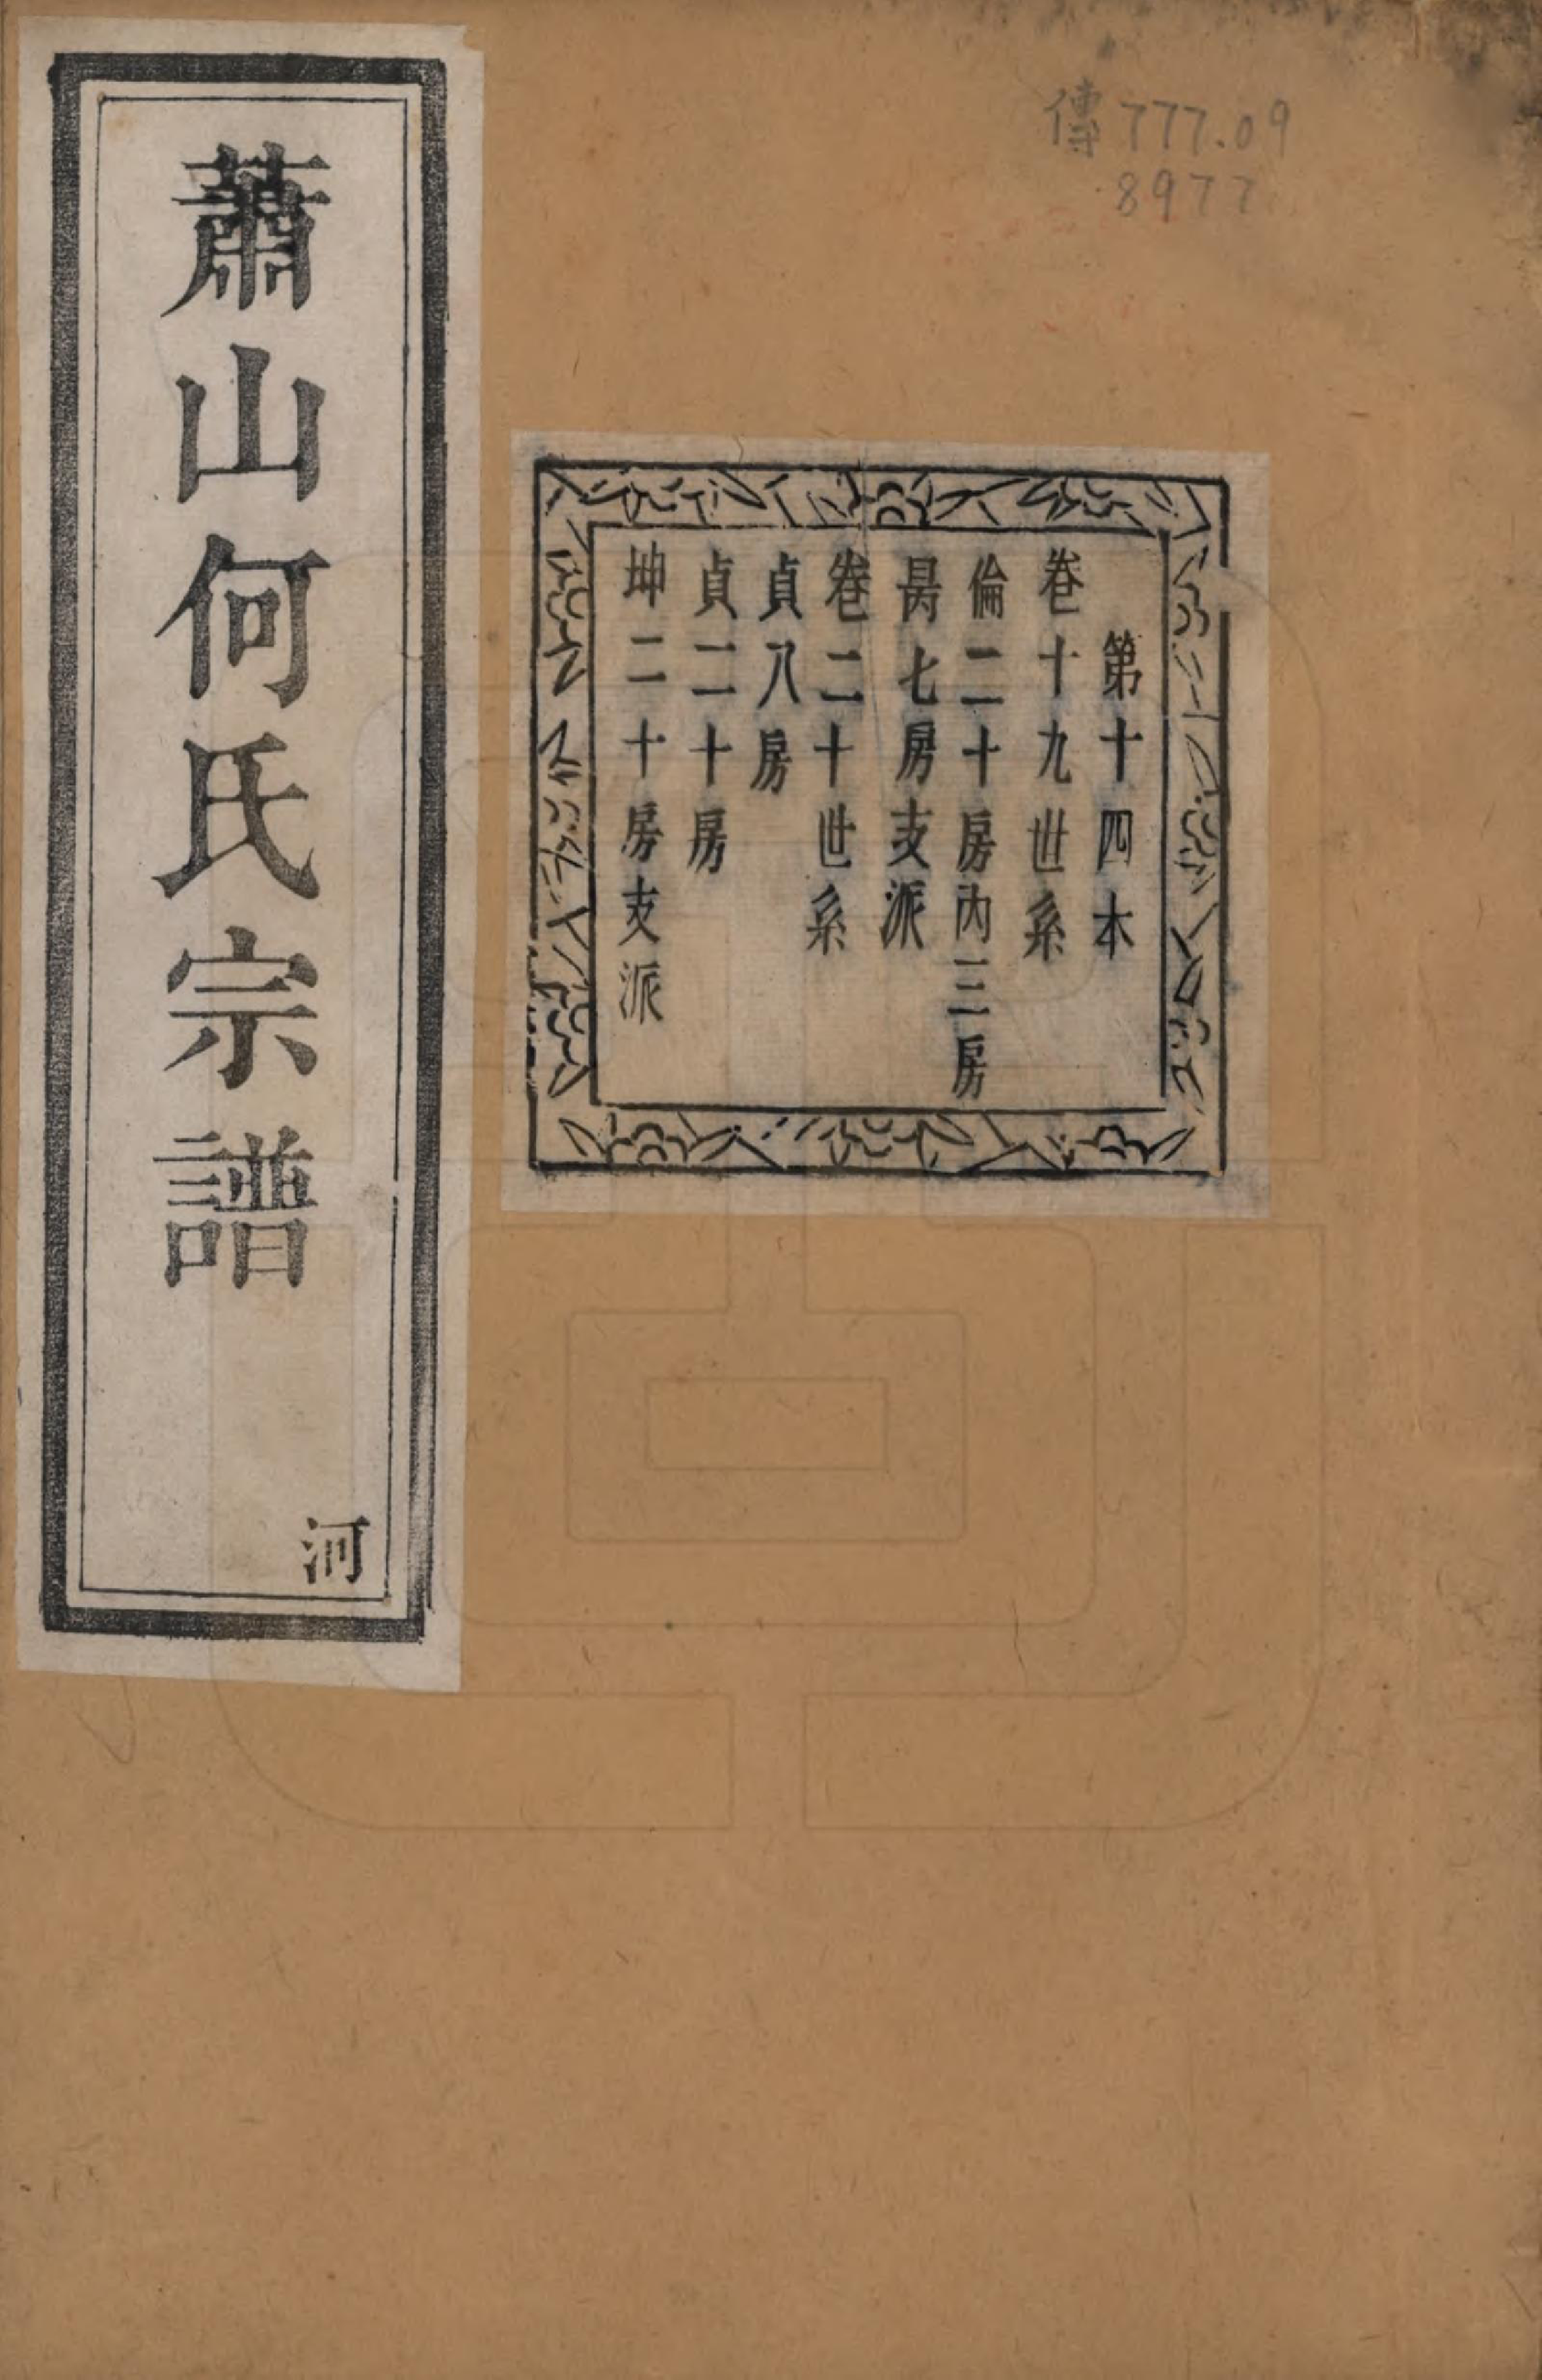 傳777.09
8977
第十四本
卷十九世系
倫二十房內三房
昺七房支派
卷二十世系
貞八房
貞二十房
坤二十房支派
蕭山何氏宗譜
河